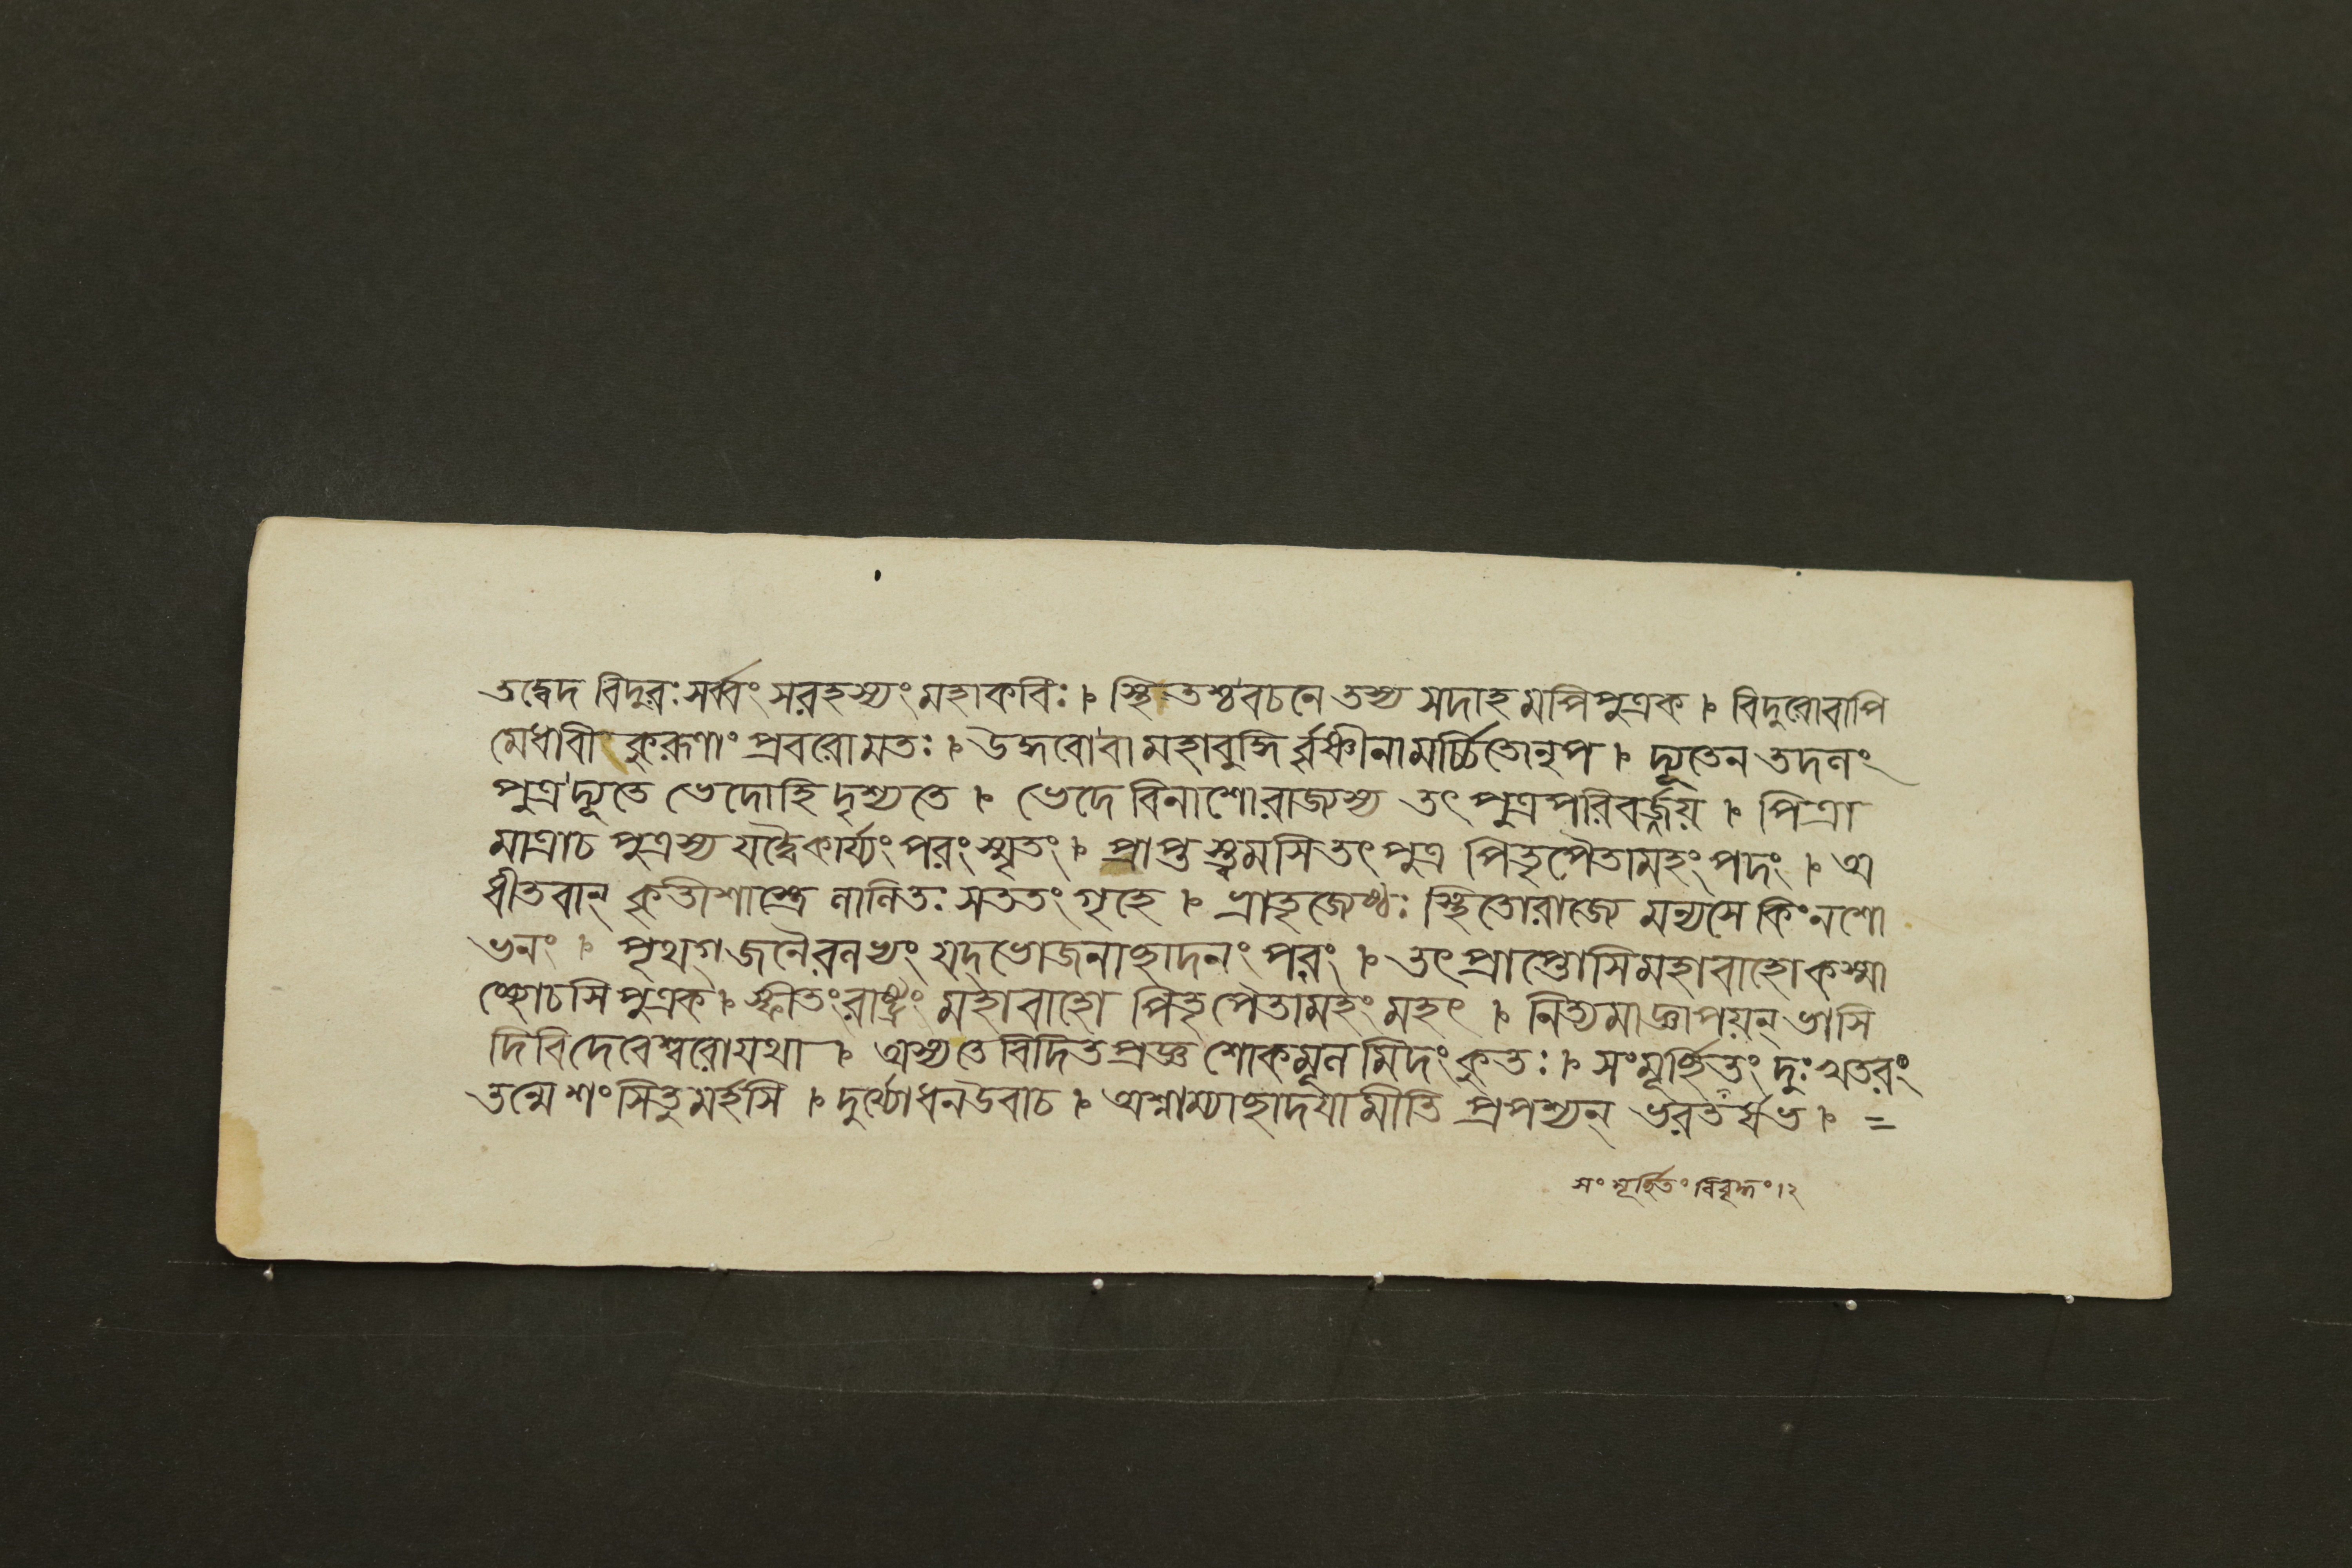 তদ্বেদ বিদুরঃ সর্ব্বং সরহস্যং মহাকবিঃ । স্থিতশ্চ বচনে তস্য সদাহমপি পুত্রক । বিদুরোবাপি
মেধাবী কুরূণাং প্রবরোমতঃ । উদ্ধবোবা মহাবুদ্ধি র্ব্বৃষ্ণীনামর্চ্চিতোনৃপ । দ্যূতেন তদলং
পুত্র দ্যূতে ভেদোহি দৃশ্যতে । ভেদে বিনাশোরাজ্যস্য তৎ পুত্র পরিবর্জ্জয় । পিত্রা
মাত্রাচ পুত্রস্য যদ্বৈকার্য্যং পরং স্মৃতং । প্রাপ্ত স্ত্বমসি তৎ পুত্র পিতৃপৈতামহং পদং । অ
ধীতবান্ কৃতীশাস্ত্রে লালিতঃ সততং গৃহে । ভ্রাতৃজ্যেষ্ঠঃ স্থিতোরাজ্যে মন্যসে কিং নশো
ভনং । পৃথগ্জনৈরলভ্যং যদ্ভোজনাচ্ছাদনং পরং । তৎ প্রাপ্তোসি মহাবাহো কস্মা
চ্ছোচসি পুত্রক । স্ফীতং রাষ্ট্রং মহাবাহো পিতৃপৈতামহং মহৎ । নিত্যমাজ্ঞাপয়ন্ ভাসি
দিবি দেবেশ্বরোযথা । অস্য তে বিদিতপ্রজ্ঞ শোকমূল মিদং কুতঃ । সংমূর্চ্ছিতং দুঃখতরং
তন্মে শংসিতুমর্হসি । দুর্য্যোধনউবাচ । অশ্নাম্যাচ্ছাদয়ামীতি প্রপশ্যন্ ভরতর্ষভ । =
সংমূর্চ্ছিতং বিবৃদ্ধং ।২